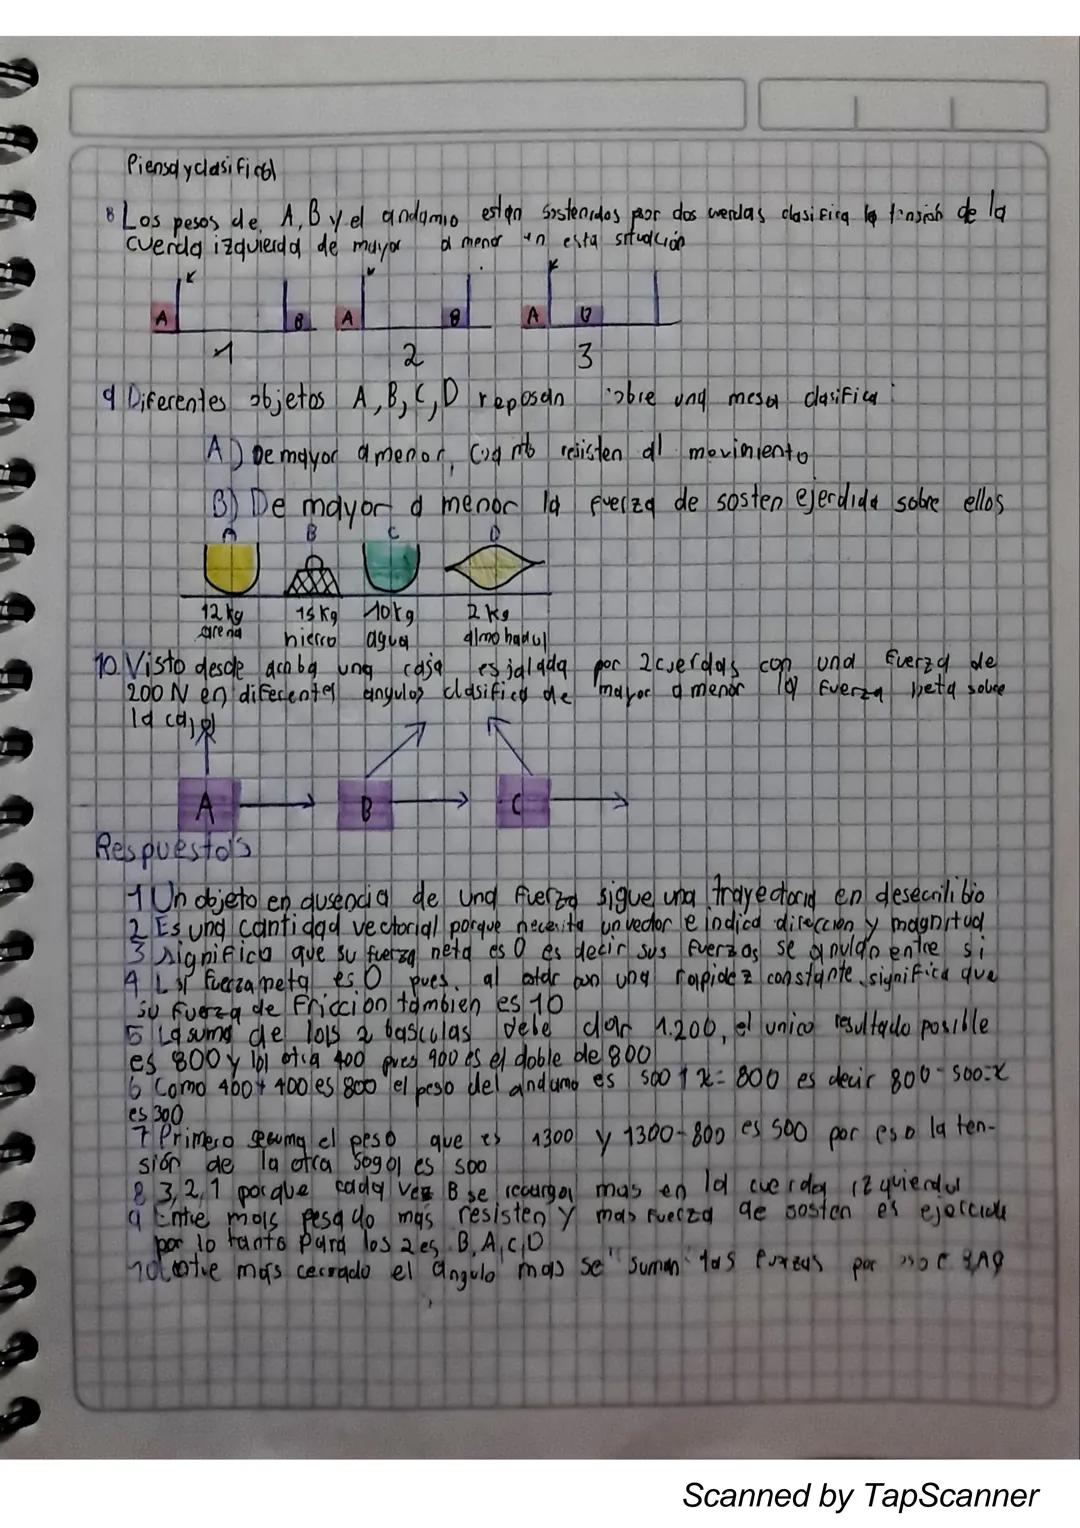 Piensa y clasifica
8 Los pesos de A, B y el andamio estan sostenidos por dos cuerdas clasifica la tensión de la
cuerda izquierda de mayor a menor en esta situación
A B A B A B
1 2 3
9 Diferentes objetos A, B, C, D reposan sobre una mesa clasifica:
A) De mayor a menor, cuanto resisten al movimiento
B) De mayor a menor la fuerza de sosten ejerdida sobre ellos
A B C D
12 kg 15 kg 10 kg 2 kg
arena hierro agua almohada
10. Visto desde arriba una caja es jalada por 2 cuerdas con una fuerza de
200 N en diferentes angulos clasifica de mayor a menor la fuerza neta sobre
la caja
A B C
Respuestas
1 Un objeto en ausencia de una fuerza sigue una trayectoria en desecrilibio
2 Es una cantidad vectorial porque necesita un vector e indica dirección y magnitud
3 significa que su fuerza neta es 0 es decir sus fuerzas se anulan entre si
4 La fuerza neta es 0 pues, al con una rapidez constante significa que
su fuerza de friccion tambien es 10
5 La suma de las 2 basculas debe dar 1.200, el unico resultado posible
es 800 y la otra 400 pues 400 es el doble de 800
6 Como 400 + 400 es 800 el peso del andamo es 500 + x = 800 es decir 800 - 500 = x
es 300
7 Primero se suma el peso que es 1300 y 1300 - 800 es 500 por eso la ten-
sión de la otra soga es 500
8 3, 2, 1 porque cada vez B se recarga mas en la cuerda izquierda
9 Entre mas pesado mas resisten y mas fuerza de sosten es ejercida
por lo tanto para los 2 es B, A, C, D
10 Entre mas cerrado el angulo mas se suman las fuerzas por
Scanned by TapScanner